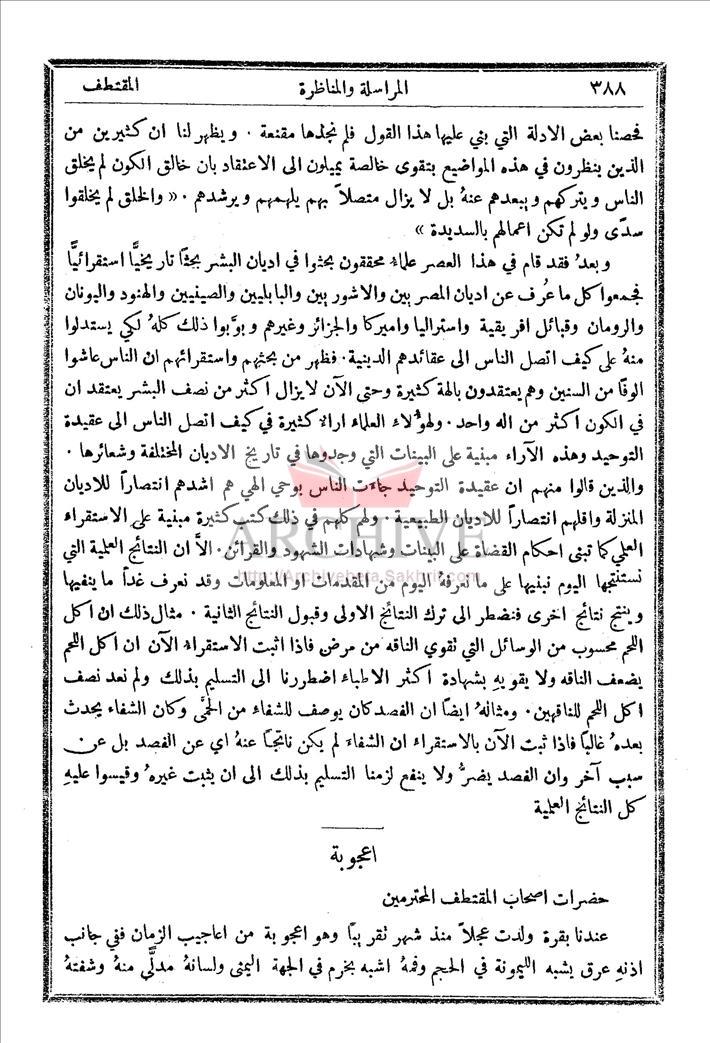 ٣٨٨ المراسلة والمناظرة المقتطف
فحصنا بعض الادلة التي بني عليها هذا القول فلم نجدها مقنعة . ويظهر لنا ان كثيرين من
الذين ينظرون في هذه المواضيع بتقوى خالصة يميلون الى الاعتقاد بان خالق الكون لم يخلق
الناس ويتركهم ويبعدهم عنهُ بل لا يزال متصلاً بهم يلهمهم ويرشدهم . « والخلق لم يخلقوا
سدًى ولو لم تكن اعمالهم بالسديدة »
وبعدُ فقد قام في هذا العصر علماءُ محققون بحثوا في اديان البشر بحثًا تاريخيًّا استقرائيًّا
فجمعوا كل ما عُرف عن اديان المصريين والاشوريين والبابليين والصينيين والهنود واليونان
والرومان وقبائل افريقية واستراليا واميركا والجزائر وغيرهم وبوَّبوا ذلك كلهُ لكي يستدلوا
منهُ على كيف اتصل الناس الى عقائدهم الدينية . فظهر من بحثهم واستقرائهم ان الناس عاشوا
الوفًا من السنين وهم يعتقدون بالهة كثيرة وحتى الآن لا يزال اكثر من نصف البشر يعتقد ان
في الكون اكثر من اله واحد . ولهؤلاء العلماء اراءٌ كثيرة في كيف اتصل الناس الى عقيدة
التوحيد وهذه الآراء مبنية على البينات التي وجدوها في تاريخ الاديان المختلفة وشعائرها .
والذين قالوا منهم ان عقيدة التوحيد جاءت الناس بوحي الهي هم اشدهم انتصاراً للاديان
المنزلة واقلهم انتصاراً للاديان الطبيعية . ولهم كلهم في ذلك كتب كثيرة مبنية على الاستقراء
العلمي كما تبنى احكام القضاة على البينات وشهادات الشهود والقرائن . الاَّ ان النتائج العلمية التي
نستنتجها اليوم نبنيها على ما نعرفهُ اليوم من المقدمات او المعلومات وقد نعرف غداً ما ينفيها
وينتج نتائج اخرى فنضطر الى ترك النتائج الاولى وقبول النتائج الثانية . مثال ذلك ان اكل
اللحم محسوب من الوسائل التي تقوي الناقه من مرض فاذا اثبت الاستقراءُ الآن ان اكل اللحم
يضعف الناقه ولا يقويهِ بشهادة اكثر الاطباء اضطررنا الى التسليم بذلك ولم نعد نصف
اكل اللحم للناقهين . ومثالهُ ايضاً ان الفصد كان يوصف للشفاء من الحمَّى وكان الشفاء يحدث
بعدهُ غالباً فاذا ثبت الآن بالاستقراء ان الشفاءَ لم يكن ناتجًا عنهُ اي عن الفصد بل عن
سبب آخر وان الفصد يضرُّ ولا ينفع لزمنا التسليم بذلك الى ان يثبت غيرهُ وقيسوا عليهِ
كل النتائج العلمية
اعجوبة
حضرات اصحاب المقتطف المحترمين
عندنا بقرة ولدت عجلاً منذ شهر تقريبًا وهو اعجوبة من اعاجيب الزمان ففي جانب
اذنهِ عرق يشبه الليمونة في الحجم وفمهُ اشبه بخرم في الجهة اليمنى ولسانهُ مدلَّى منهُ وشفتهُ
ARCHIVE
http://Archivebeta.Sakhrit.com